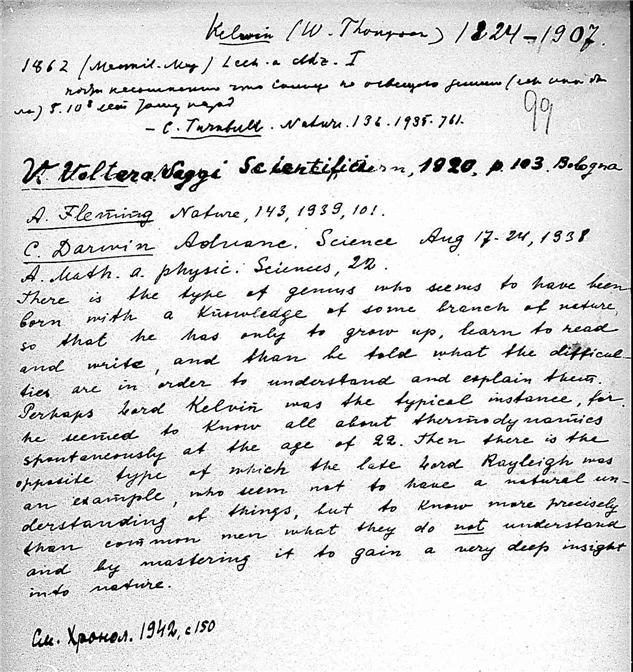 Kelvin (W. Thompson) 1824-1907.
1862 (Macmil. Mag) Lect. a Adr. I
что солнце не освещало землю
5.10⁸ лет тому назад
99
- C. Turnbull. Nature. 136. 1935. 761.
V. Voltera. Saggi Scientifici, 1920, p. 103. Bologna
A. Fleming Nature, 143, 1939, 101.
C. Darwin Advanc. Science Aug 17-24, 1938
A. Math. a. physic. Sciences, 22.
There is the type of genius who seems to have been
born with a knowledge of some branch of nature,
so that he has only to grow up, learn to read
and write, and than be told what the difficul-
ties are in order to understand and explain them.
Perhaps Lord Kelvin was the typical instance, for
he seemed to know all about thermodynamics
spontaneously at the age of 22. Then there is the
opposite type of which the late Lord Rayleigh was
an example, who seem not to have a natural un-
derstanding of things, but to know more precisely
than common men what they do not understand
and by mastering it to gain a very deep insight
into nature.
См. Хронол. 1942, с 150